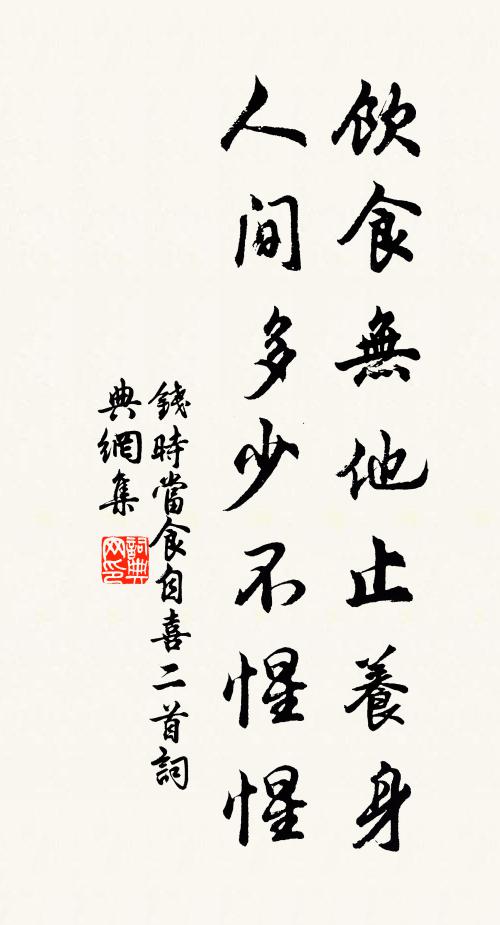 飲食無他止養身
人间多少不惺惺
錢時當食自喜二首詞
典網集
詞典
网印